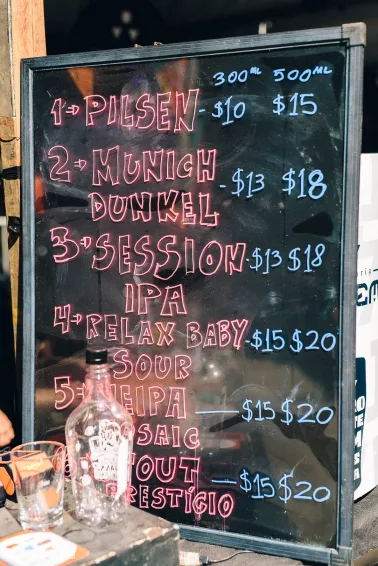 300ML 500ML
1→ PILSEN - $10 $15
2→ MUNICH
DUNKEL - $13 $18
3→ SESSION - $13 $18
IPA
4→ RELAX BABY - $15 $20
SOUR
5 EIPA — $15 $20
SAIC
OUT
PRESTÍGIO — $15 $20